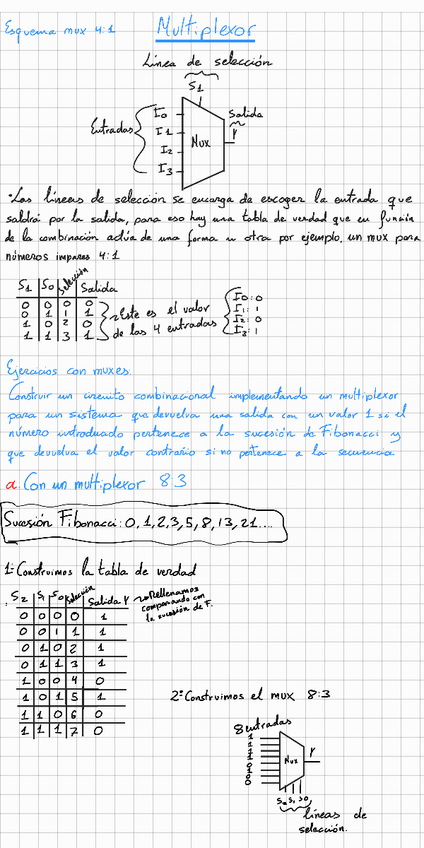 Esquema mux 4:1
Multiplexor
Línea de selección
S1
Entradas
I0
I1
I2
I3
Mux
Salida
Y
·Las líneas de selección se encarga de escoger la entrada que
saldrá por la salida, para eso hay una tabla de verdad que en función
de la combinación actúa de una forma u otra por ejemplo, un mux para
números impares 4:1
S1 S0 Selección Salida
0 0 0 0
0 1 1 1
1 0 2 0
1 1 3 1
Este es el valor
de las 4 entradas
I0: 0
I1: 1
I2: 0
I3: 1
Ejercicios con muxes:
Construir un circuito combinacional implementando un multiplexor
para un sistema que devuelva una salida con un valor 1 si el
número introducido pertenece a la sucesión de Fibonacci y
que devuelva el valor contrario si no pertenece a la secuencia
a. Con un multiplexor 8:3
Sucesión Fibonacci: 0, 1, 2, 3, 5, 8, 13, 21....
1º Construimos la tabla de verdad
S2 S1 S0 Selección Salida Y
Rellenamos
comparando con
la sucesión de F.
0 0 0 0 1
0 0 1 1 1
0 1 0 2 1
0 1 1 3 1
1 0 0 4 0
1 0 1 5 1
1 1 0 6 0
1 1 1 7 0
2º Construimos el mux 8:3
8 entradas
1
1
1
1
0
1
0
0
Mux
Y
S2 S1 S0
líneas de
selección.